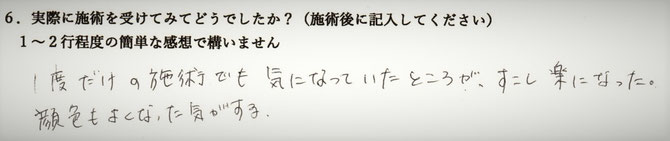 6．実際に施術を受けてみてどうでしたか？（施術後に記入してください）
1～2行程度の簡単な感想で構いません
1度だけの施術でも 気になっていたところが、すこし 楽になった。
顔色もよくなった気がする.